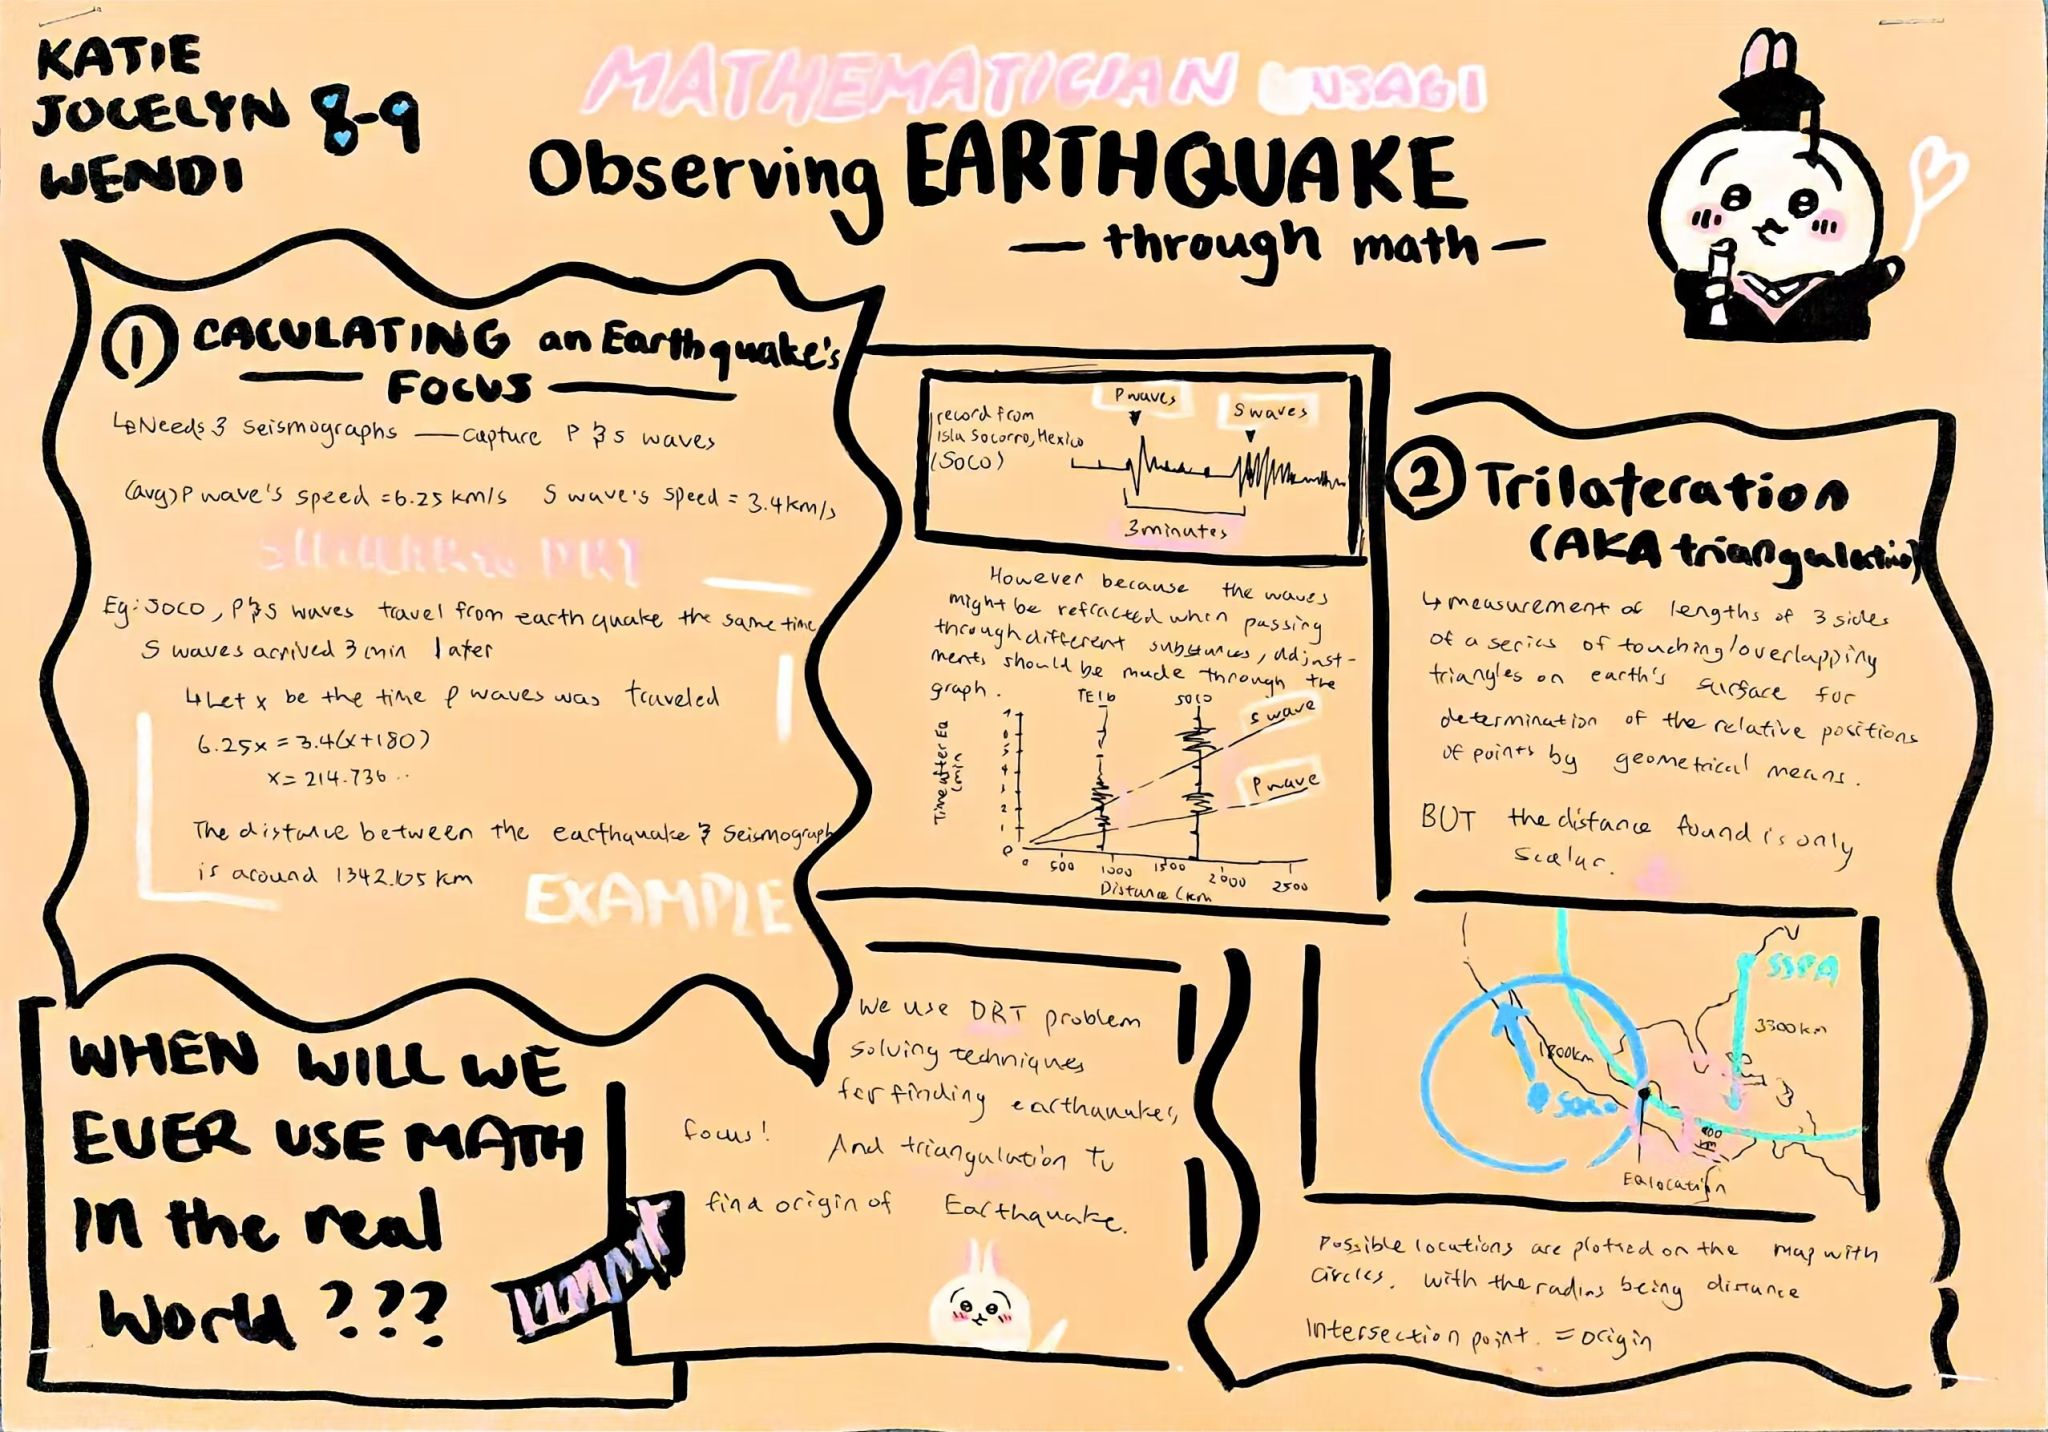 KATIE
JOCELYN 8-9
WENDI
MATHEMATICIAN USAGI
Observing EARTHQUAKE
— through math —
① CACULATING an Earthquake's
FOCUS
↳ Needs 3 seismographs — capture P & S waves
(avg) P wave's speed = 6.25 km/s S wave's speed = 3.4 km/s
DRT
Eg: SOCO, P & S waves travel from earthquake the same time
S waves arrived 3 min later
↳ Let x be the time P waves was traveled
6.25x = 3.4(x+180)
x = 214.736..
The distance between the earthquake & seismograph
is around 1342.105 km
EXAMPLE
P waves
S waves
record from
Isla Socorro, Mexico
(SOCO)
3 minutes
However because the waves
might be refracted when passing
through different substances, adjust-
ments should be made through the
graph.
TEIG
SOCO
S wave
P wave
Time after Eq
(min
5
4
3
2
1
0
0 500 1000 1500 2000 2500
Distance (km
② Trilateration
(AKA triangulation)
↳ measurement of lengths of 3 sides
of a series of touching/overlapping
triangles on earth's surface for
determination of the relative positions
of points by geometrical means.
BUT the distance found is only
scalar.
SSPA
3300km
1800km
SOCO
900
km
EQ location
Possible locations are plotted on the map with
circles. with the radius being distance
Intersection point. = origin
WHEN WILL WE
EVER USE MATH
In the real
World ???
We use DRT problem
solving techniques
for finding earthquakes,
focus! And triangulation to
find origin of Earthquake.